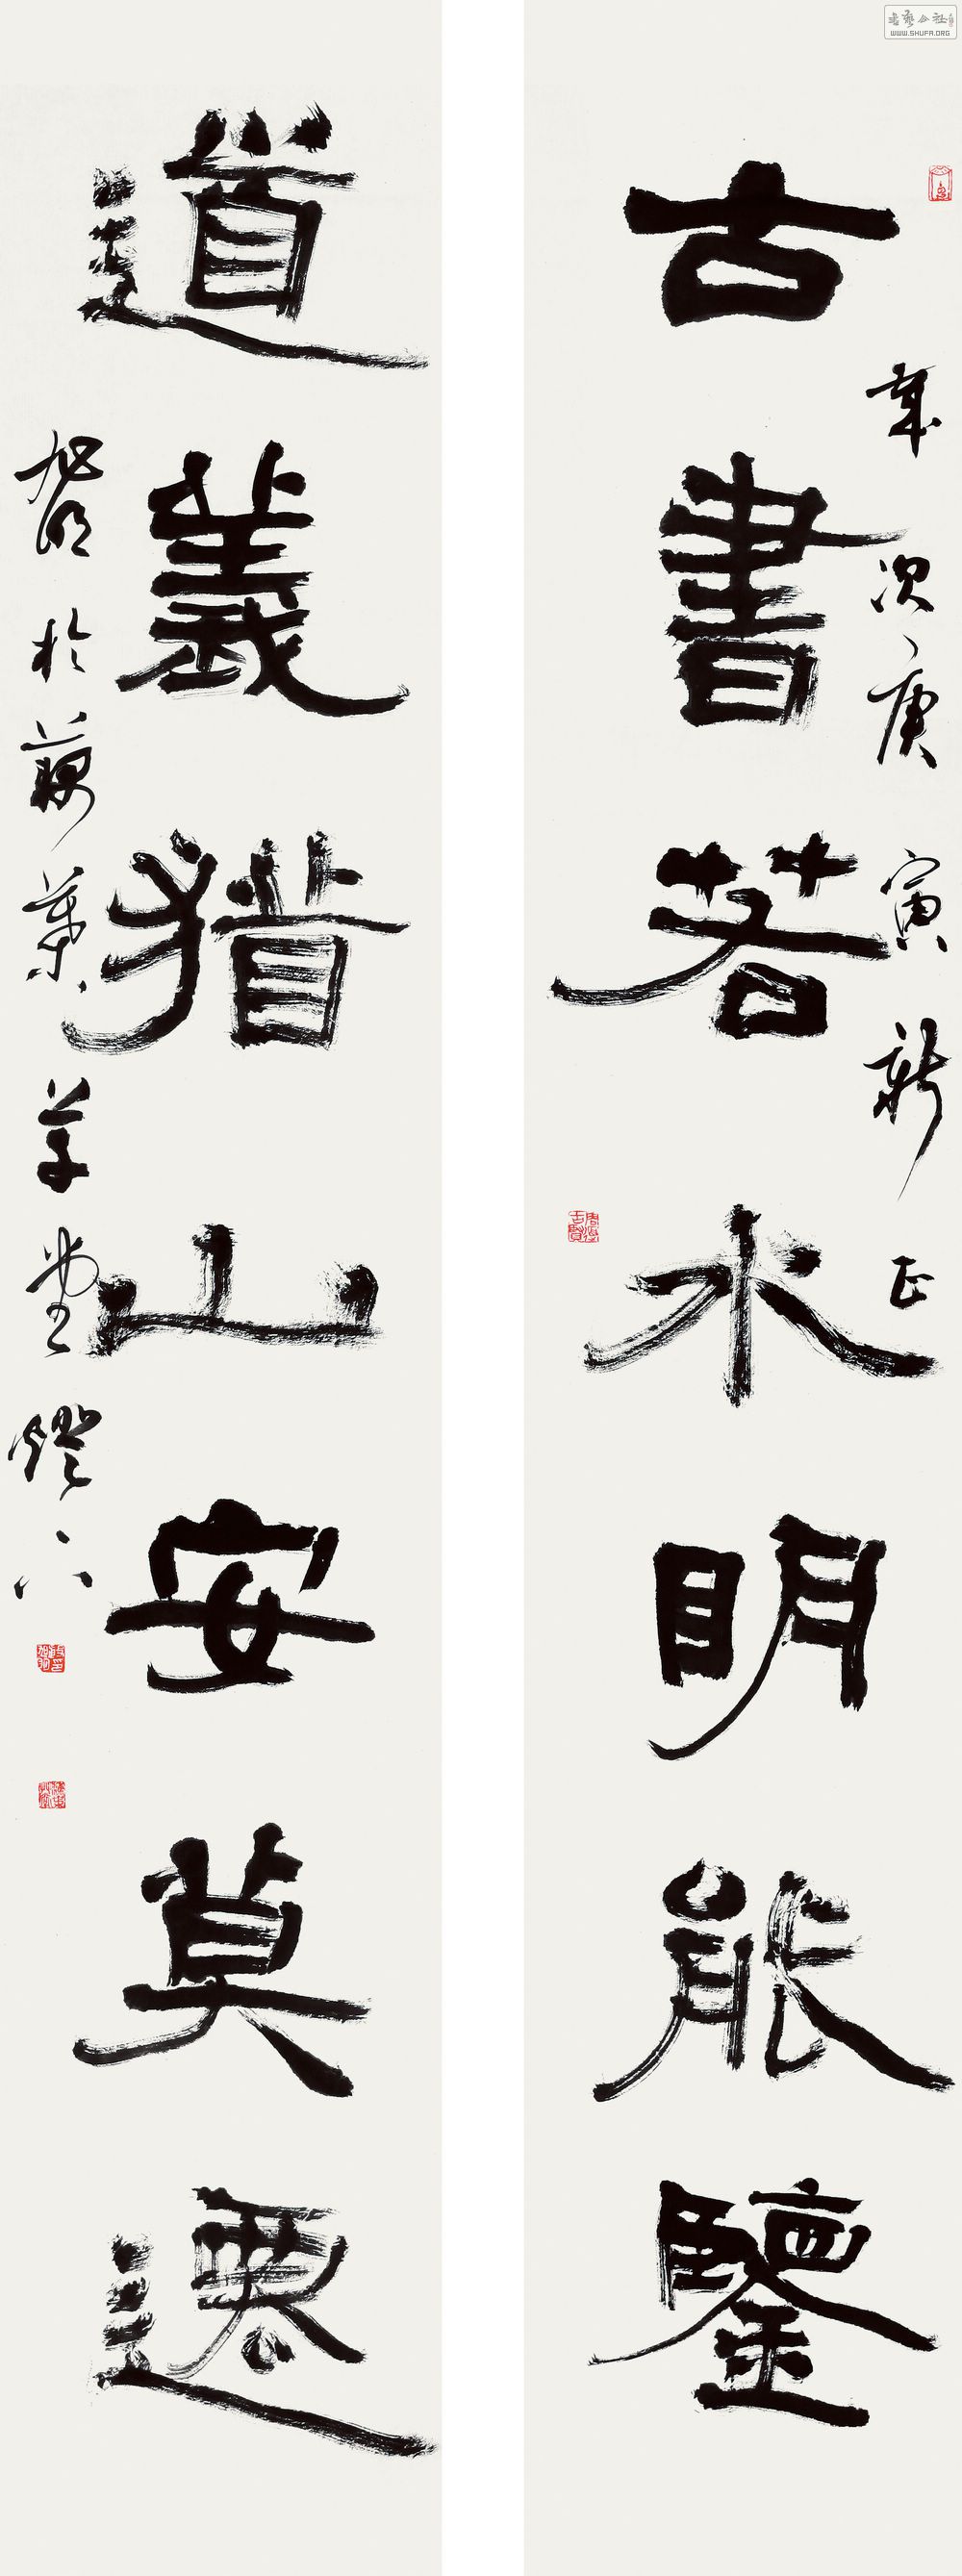 書藝公社
WWW.SHUFA.ORG
歲次庚寅新正
古書若水明能鑒
道義猶山安莫遷
於葉草堂燈下